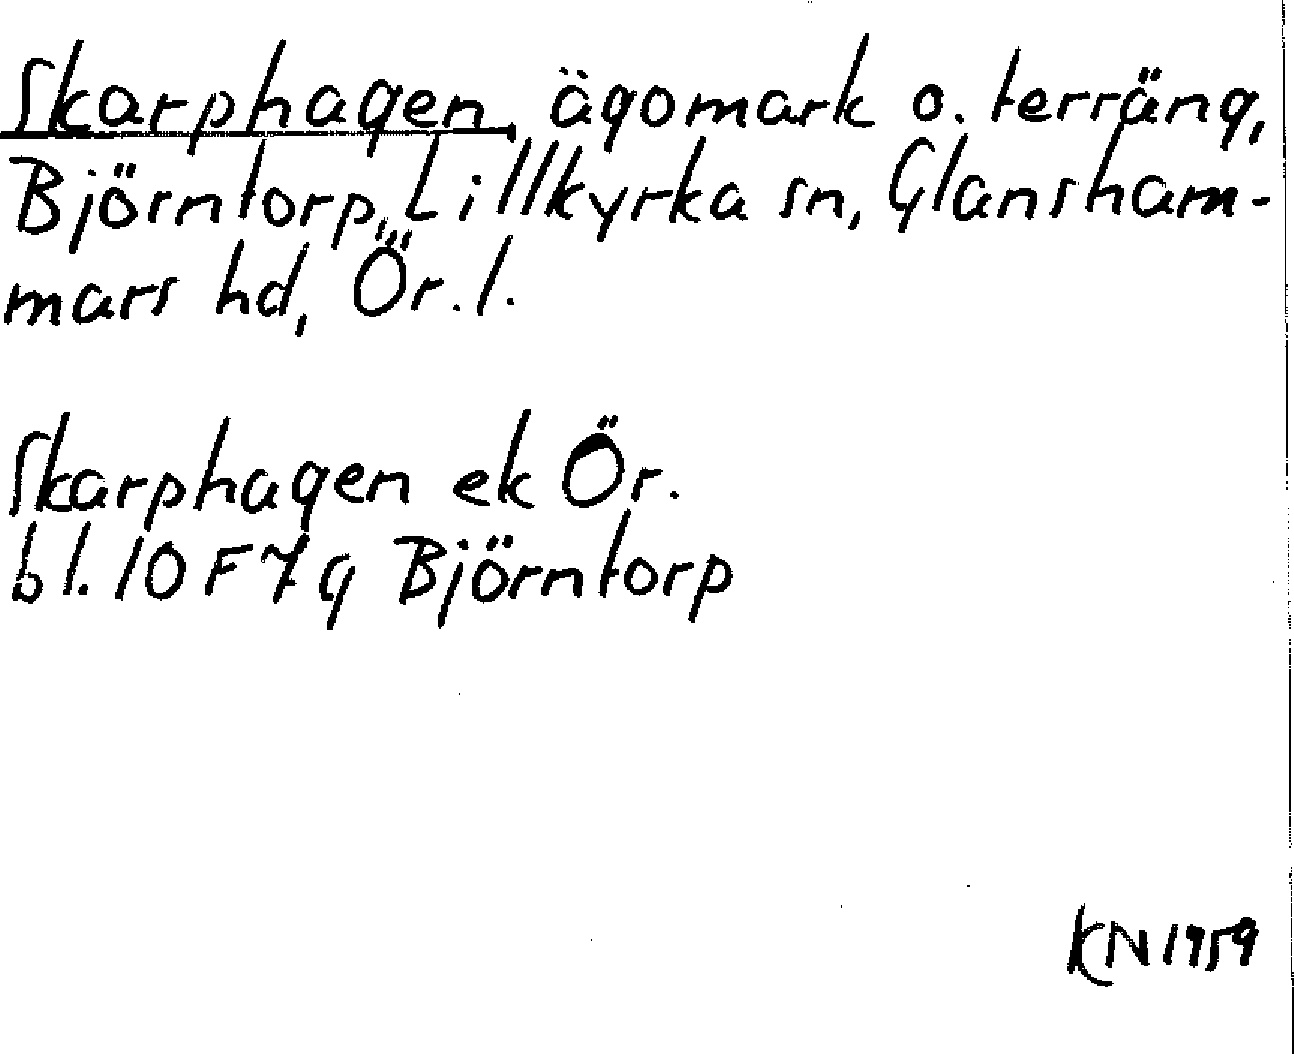 Skarphagen, ägomark o. terräng,
Björntorp, Lillkyrka sn, Glansham-
mars hd, Ör. l.
Skarphagen ek Ör.
bl. 10 F 7 g Björntorp
KN 1959